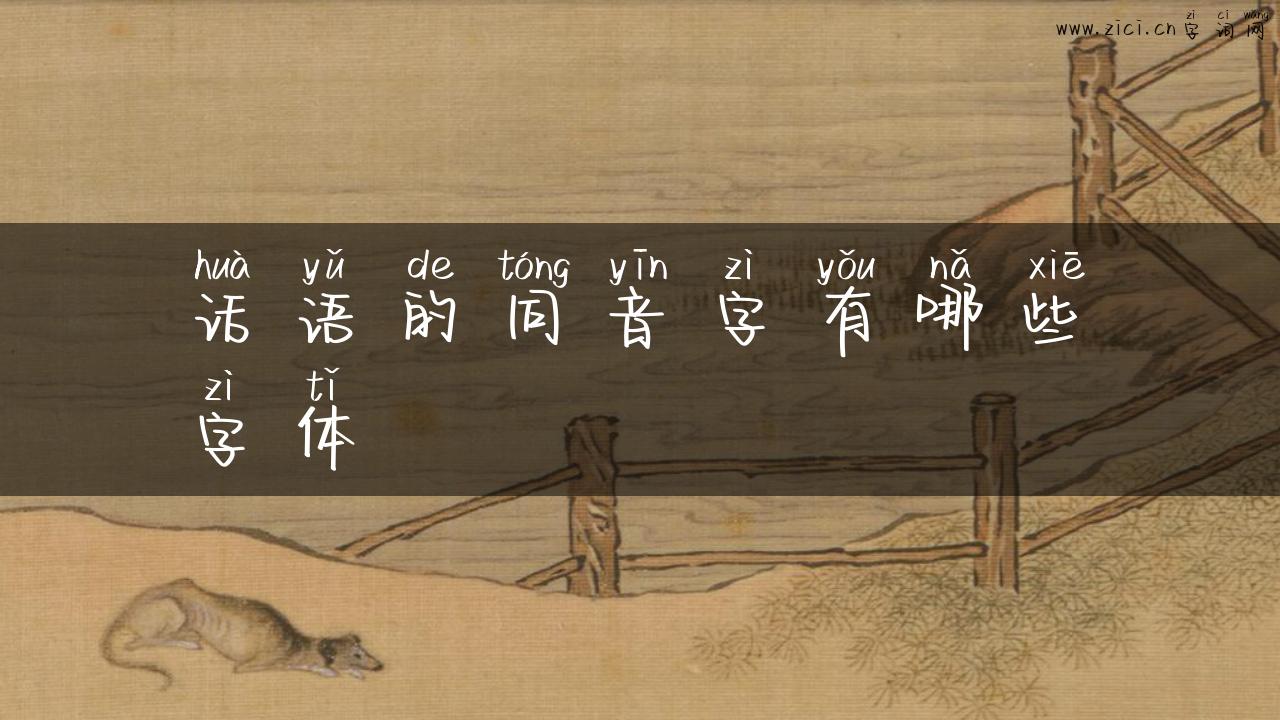 zì cí wǎng
www.zici.cn 字词网
huà yǔ de tóng yīn zì yǒu nǎ xiē
话语的同音字有哪些
zì tǐ
字体